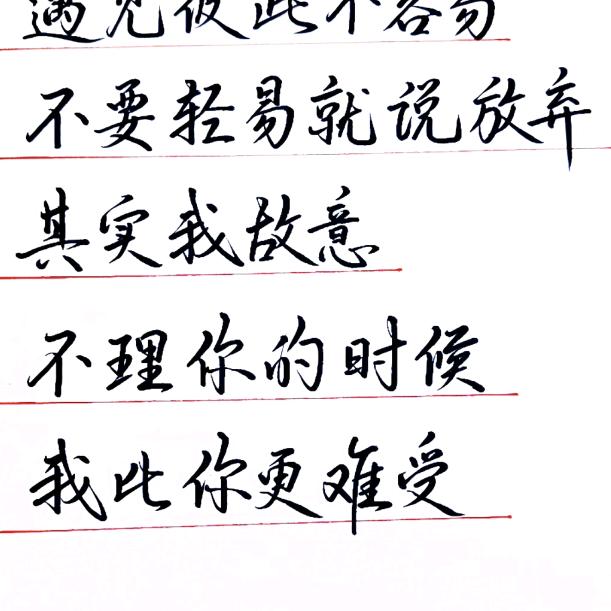 遇见彼此不容易
不要轻易就说放弃
其实我故意
不理你的时候
我此你更难受